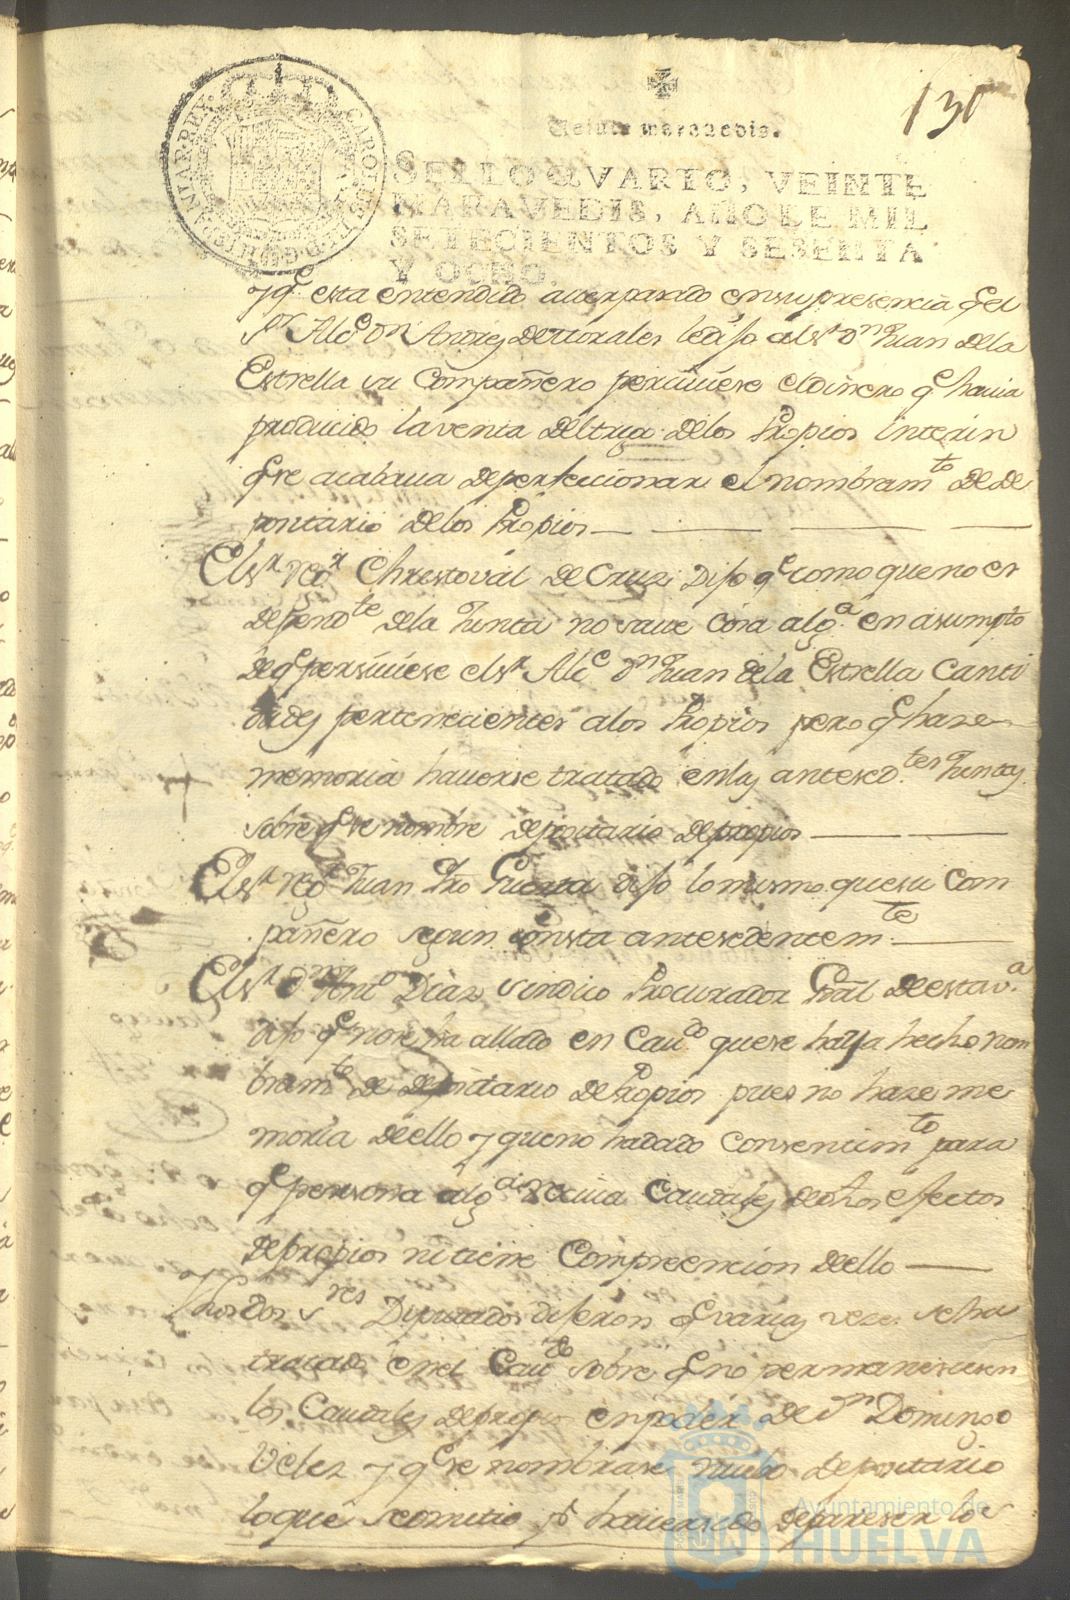 130
Veinte maravedis.
SELLO QVARTO, VEINTE
MARAVEDIS, AÑO DE MIL
SETECIENTOS Y SESENTA
Y OCHO.
y q.e esta entendido aver pasado en su presencia q.e el
S.or Alc.e D.n Andres de Morales le dijo al S.r D.n Juan de la
Estrella su Compañero perciviese el dinero q.e havia
producido la venta del trigo de los Propios interin
q.e se acabava de perfeccionar el nombram.to de de
positario de los Propios
El S.r reg.r Christoval de Cruz: Dijo q.e como que no es
depend.te de la Junta no save cosa alg.a en asumpto
de q.e persiviese el S.r Alc.e D.n Juan de la Estrella Canti
dades pertenecientes a los Propios pero q.e haze
memoria haverse tratado en las anteced.tes Juntas
sobre q.e se nombre depositario de propios
El S.r reg.r Juan dijo lo mismo que su Com
pañero segun consta antesedentem.te
El S.r D.n Ant.o Diaz Sindico Procurador Gral de esta v.a
dijo q.e no se ha allado en Cav.do que se haya hecho nom
bram.to de depositario de Propios pues no haze me
moria de ello y que no ha dado consentim.to para
q.e persona alg.a reciva Caudales de dhos efectos
de propios ni tiene Comprecencion de ello
Y los dos S.res Diputados dijeron q.e varias veces se ha
tratado en el Cav.do sobre q.e no permaneciesen
los Caudales de propios en poder de D.n Domingo
Velez y q.e se nombrase nuebo depositario
lo que se omitio p.r haver sido de pareser los
Ayuntamiento de
HUELVA